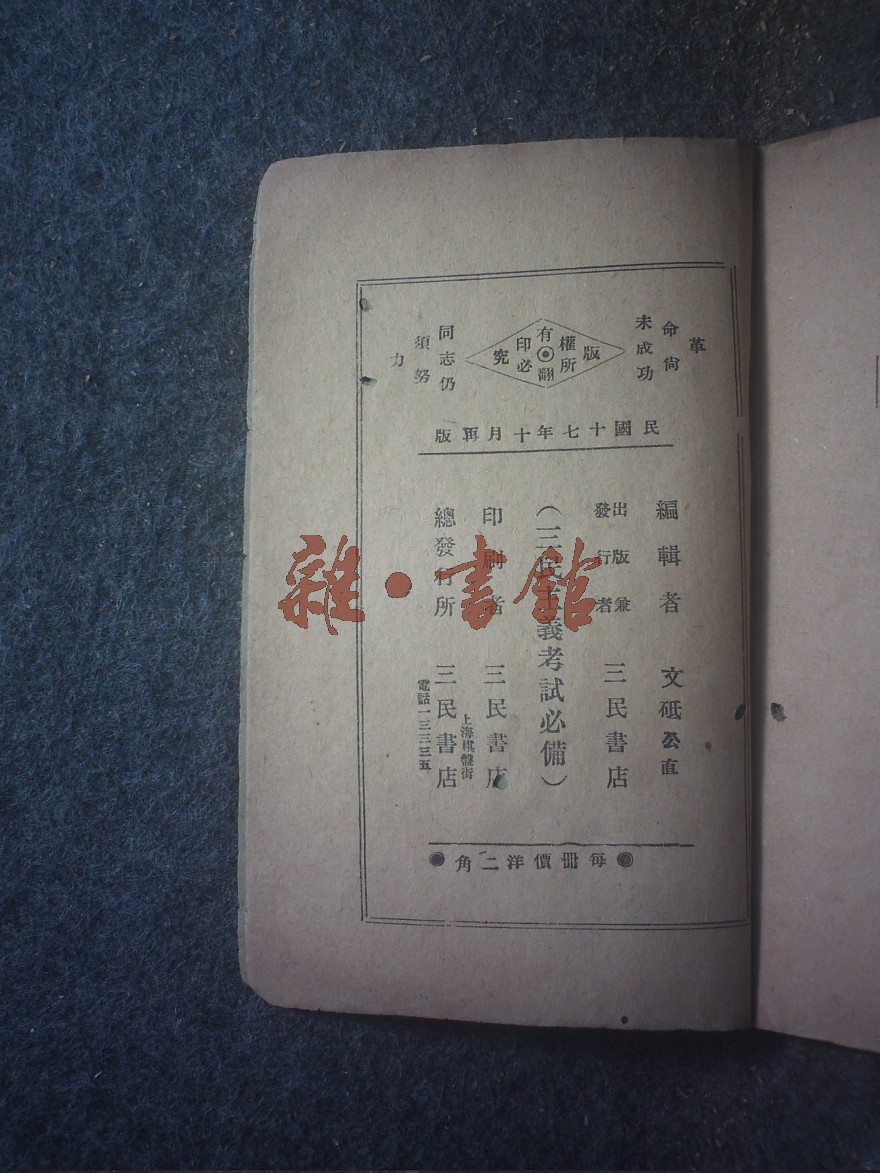 革命尙未成功
版權所有翻印必究
同志仍須努力
民國十七年十月再版
編輯者 文砥公直
出版兼發行者 三民書店
（三民主義考試必備）
印刷者 三民書店
上海棋盤街
總發行所 三民書店
電話一三三三五
每冊價洋二角
雜·書館